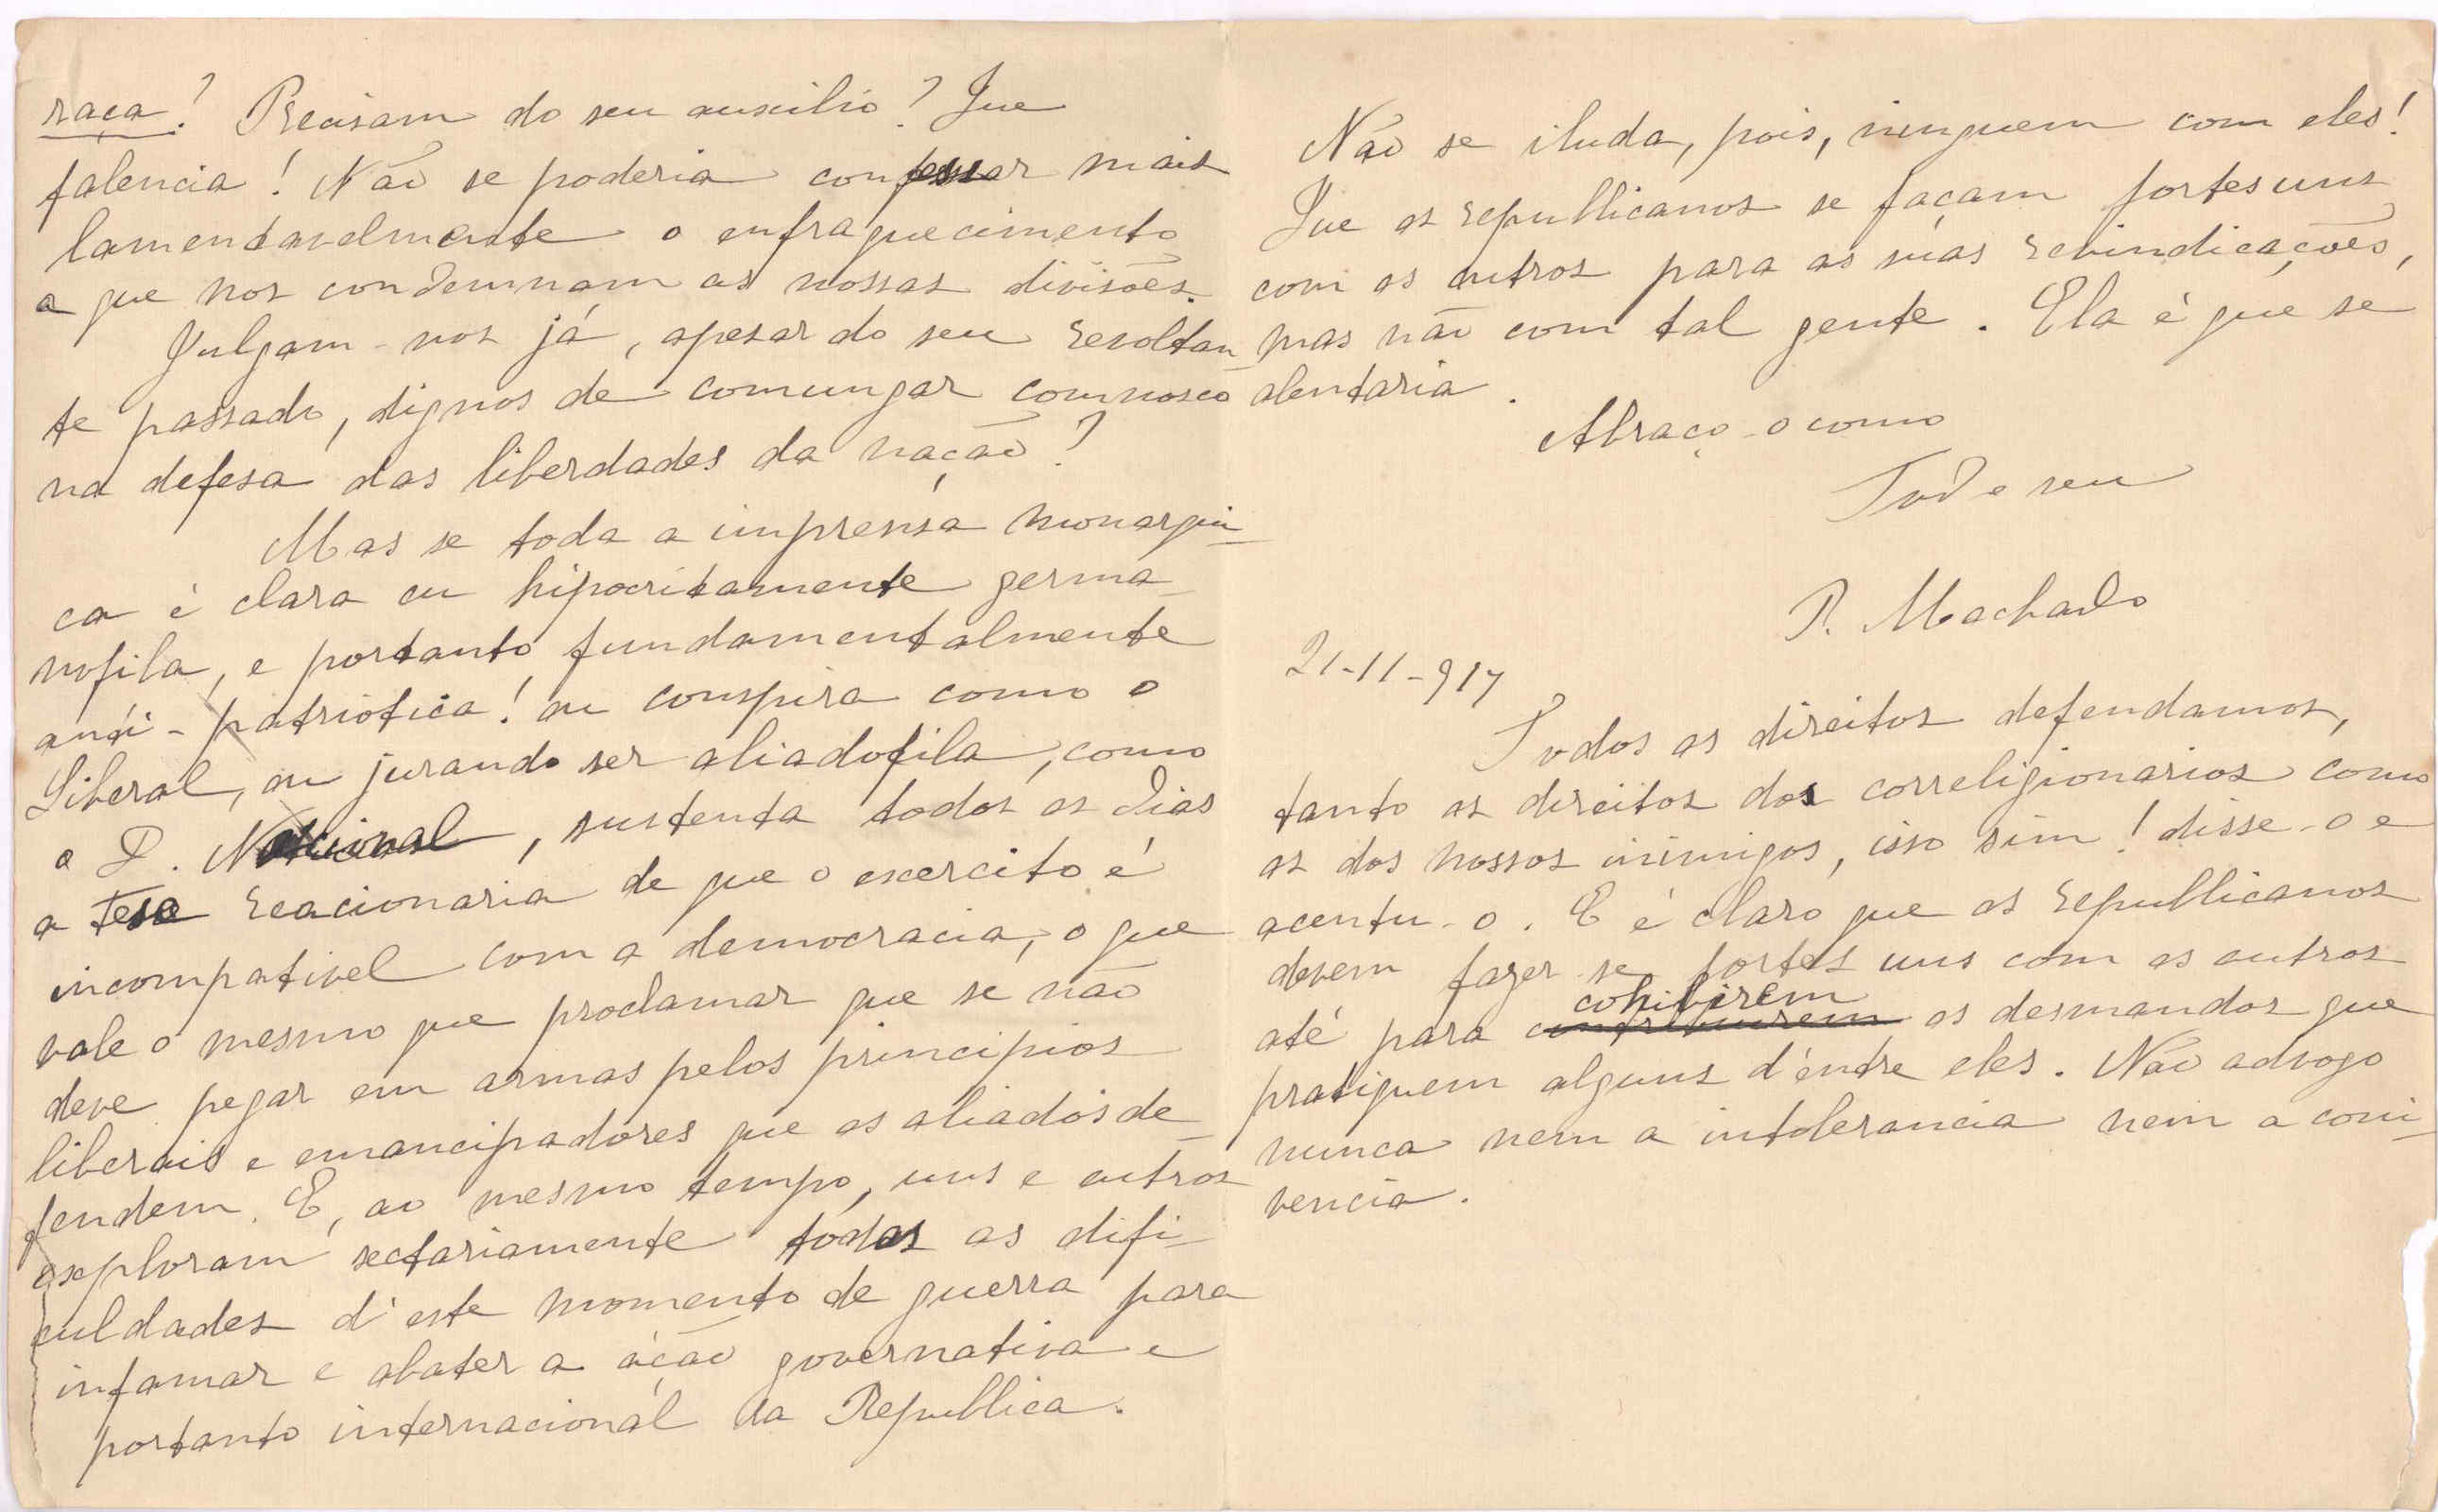 raça? Precisam do seu auxilio? Que
falencia! Não se poderia confessar mais
lamentavelmente o enfraquecimento
a que nos condemnam as nossas divisões.
Julgam-nos já, apesar do seu revoltan
te passado, dignos de comungar comnosco
na defesa das liberdades da nação?
Mas se toda a imprensa monarqui-
ca é clara ou hipocritamente germa-
nofila, e portanto fundamentalmente
anti-patriotica! ou conspira como o
Liberal, ou jurando ser aliadofila, como
o D. Nacional, sustenta todos os dias
a tese reacionaria de que o exercito é
incompativel com a democracia, o que
vale o mesmo que proclamar que se não
deve pegar em armas pelos principios
liberais e emancipadores que os aliados de-
fendem. E, ao mesmo tempo, uns e outros
exploram sectariamente todas as difi-
culdades d'este momento de guerra para
infamar e abater a ação governativa e
portanto internacional da Republica.
Não se iluda, pois, ninguem com eles!
Que os republicanos se façam fortes uns
com os outros para as suas revindicações,
mas não com tal gente. Ela é que se
alentaria.
Abraço-o como
Todo seu
B. Machado
21-11-917
Todos os direitos defendamos,
tanto os direitos dos correligionarios como
os dos nossos inimigos, isso sim! disse-o e
acentu-o. E é claro que os republicanos
devem fazer-se fortes uns com os outros
até para cohibirem os desmandos que
pratiquem alguns d'entre eles. Não advogo
nunca nem a intolerancia nem a coni-
vencia.